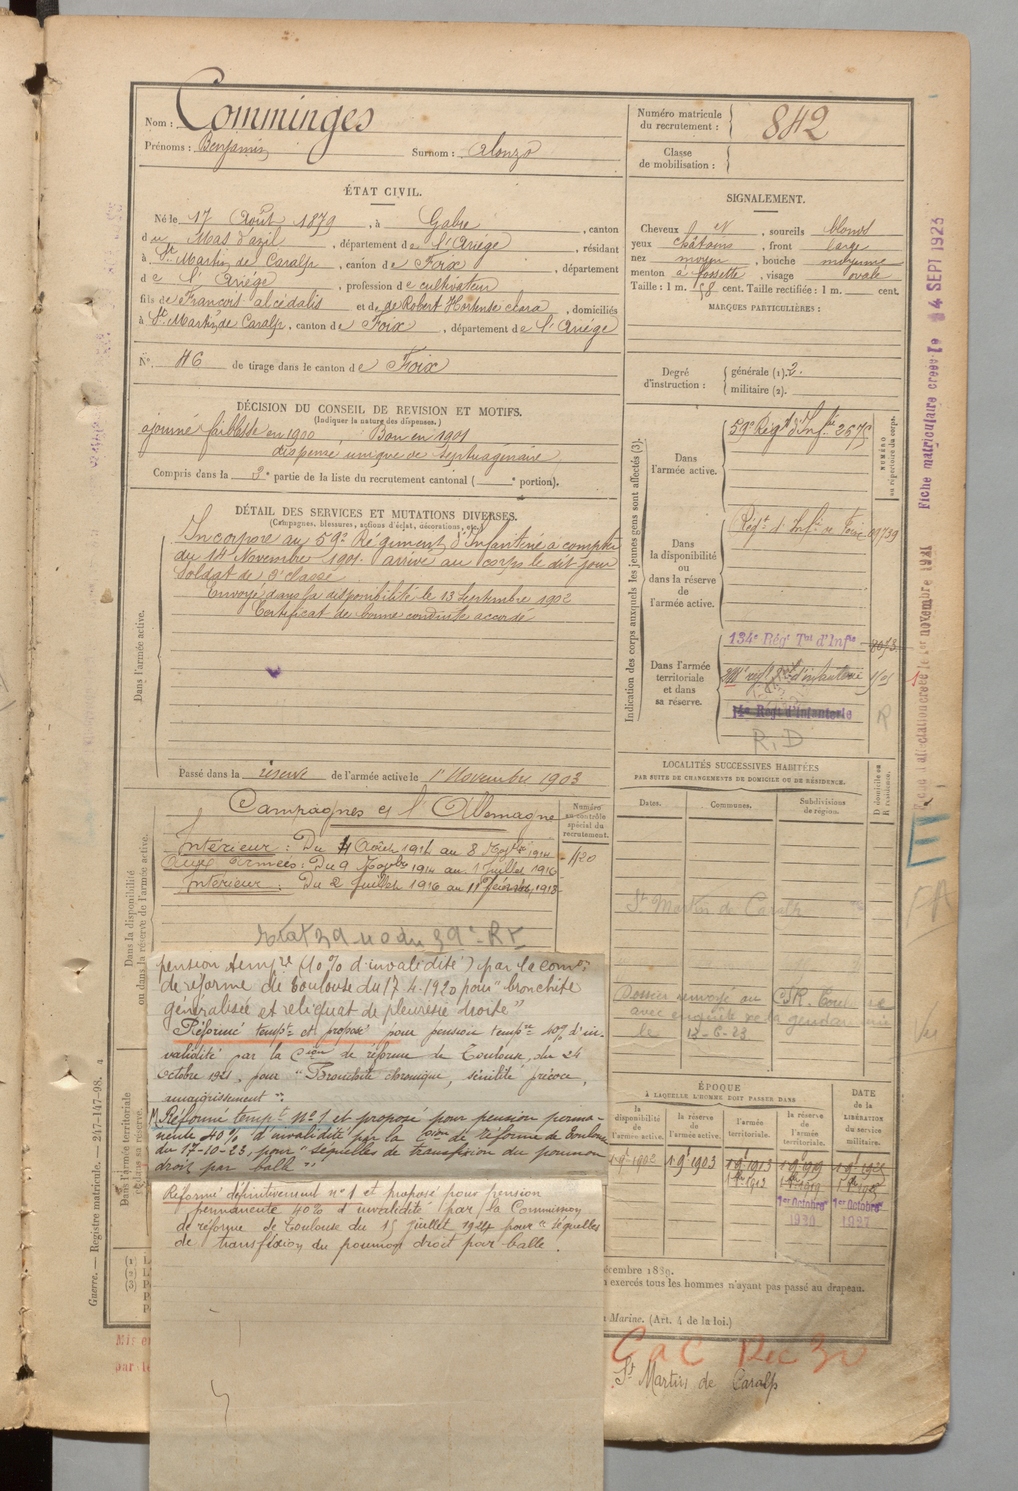 Nom : Comminges
Prénoms : Benjamin Surnom : Alonzo
Numéro matricule du recrutement : 842
Classe de mobilisation :
ÉTAT CIVIL.
Né le 17 Août 1879, à Gabre, canton
du Mas d'azil, département de l'Ariége, résidant
à St Martin de Caralp, canton de Foix, département
de l'Ariége, profession de cultivateur
fils de François alcédalis et de de Robert Hortense clara, domiciliés
à St Martin de Caralp, canton de Foix, département de l'Ariége
N° 46 de tirage dans le canton de Foix
SIGNALEMENT.
Cheveux N, sourcils blonds
yeux châtains, front large
nez moyen, bouche moyenne
menton à fossette, visage ovale
Taille : 1 m. 58 cent. Taille rectifiée : 1 m. cent.
MARQUES PARTICULIÈRES :
Degré d'instruction : générale (1). 2.
militaire (2).
DÉCISION DU CONSEIL DE REVISION ET MOTIFS.
(Indiquer la nature des dispenses.)
ajourné faiblesse en 1900, Bon en 1901
dispense unique de septuagénaire
Compris dans la 2e partie de la liste du recrutement cantonal ( e portion).
DÉTAIL DES SERVICES ET MUTATIONS DIVERSES.
(Campagnes, blessures, actions d'éclat, décorations, etc.)
Dans l'armée active.
Incorporé au 59e Régiment d'Infanterie à compter
du 14 Novembre 1901. arrivé au corps le dit jour
Soldat de 2e classe
Envoyé dans la disponibilité le 13 Septembre 1902
Certificat de bonne conduite accordé
Passé dans la réserve de l'armée active le 1er Novembre 1903
Indication des corps auxquels les jeunes gens sont affectés (3).
NUMÉRO au répertoire du corps.
Dans l'armée active. 59e Régt d'Infie 2575
Dans la disponibilité ou dans la réserve de l'armée active. Régt d'Infie de Foix
Dans l'armée territoriale et dans sa réserve. 134e Régt Tal d'Infie
14e Régt d'Infanterie
R.D
R
LOCALITÉS SUCCESSIVES HABITÉES
PAR SUITE DE CHANGEMENTS DE DOMICILE OU DE RÉSIDENCE.
Dates. Communes. Subdivisions de région. D domicile ou R résidence.
St Martin de Caralp
Dossier envoyé au CSR. Toul
avec enquête de la gendarmerie
le 12-6-23
Dans la disponibilité ou dans la réserve de l'armée active.
Campagnes c/ l'Allemagne
Numéro au contrôle spécial du recrutement.
1120
Intérieur : Du 4 Août 1914 au 8 Novbre 1914
Aux armées : Du 9 Novbre 1914 au 1 Juillet 1916
Intérieur : Du 2 Juillet 1916 au 11 février 1918
pension tempre (10% d'invalidité) par la comon
de réforme de Toulouse du 17.4.1920 pour "bronchite
généralisée et reliquat de pleurésie droite"
Réformé tempt et proposé pour pension tempre 10% d'in-
validité par la Cion de réforme de Toulouse, du 24
octobre 1921, pour "Bronchite chronique, sénilité précoce,
amaigrissement".
Réformé tempt n°1 et proposé pour pension perma-
nente 40% d'invalidité par la Cion de réforme de Toulouse
du 17-10-23, pour "séquelles de transfixion du poumon
droit par balle"
Réformé définitivement n°1 et proposé pour pension
permanente 40% d'invalidité par la Commission
de réforme de Toulouse du 15 juillet 1924 pour "séquelles
de transfixion du poumon droit par balle.
ÉPOQUE
À LAQUELLE L'HOMME DOIT PASSER DANS
la disponibilité de l'armée active. la réserve de l'armée active. l'armée territoriale. la réserve de l'armée territoriale.
DATE de la LIBÉRATION du service militaire.
1903 1913
1er Octobre 1er Octobre
Dans l'armée territoriale
écembre 1889.
exercés tous les hommes n'ayant pas passé au drapeau.
Marine. (Art. 4 de la loi.)
CaC Rec 30
St Martin de Caralp
Guerre. — Registre matricule. — 247-147-98.
Fiche matriculaire créée le 4 SEPT 1923